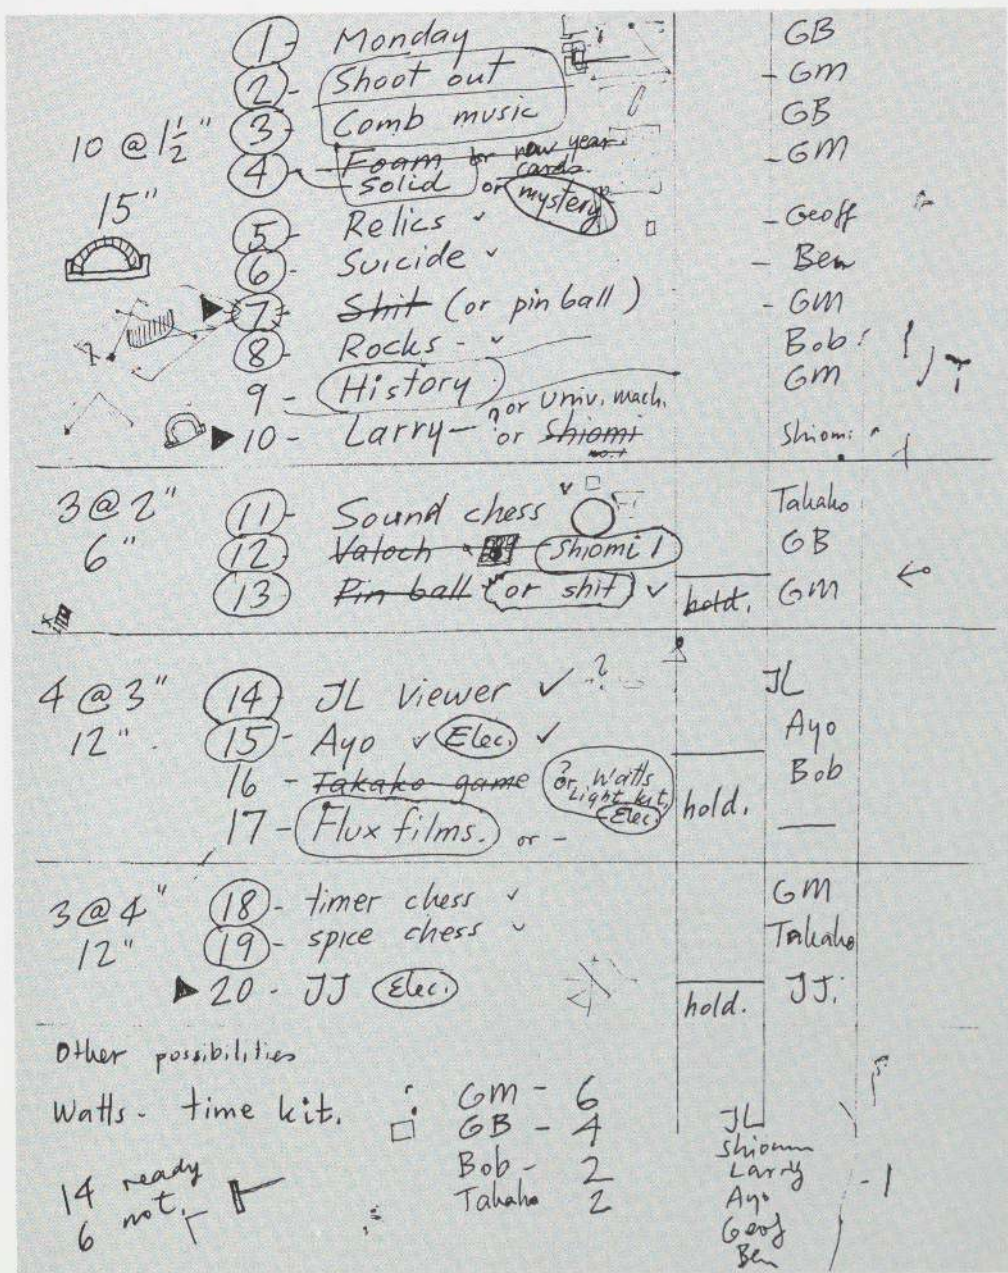 1 - Monday GB
2 - Shoot out - GM
3 - Comb music GB
10 @ 1 1/2" 4 - Foam or new year cards. - GM
solid or mystery
15" 5 - Relics ✓ - Geoff
6 - Suicide ✓ - Ben
7 - Shit (or pin ball) - GM
8 - Rocks - ✓ Bob
9 - History GM
10 - Larry - ? or Univ. mach. or Shiomi Shiomi
3 @ 2" 11 - Sound chess ✓ Takako
6" 12 - Valoch Shiomi 1 GB
13 - Pin ball (or shit) ✓ hold. GM
4 @ 3" 14 - JL viewer ✓ ? JL
12" 15 - Ayo ✓ Elec. ✓ Ayo
16 - Takako game ? or Watts Light kit. Elec. Bob
17 - Flux films. or - hold. —
3 @ 4" 18 - timer chess ✓ GM
12" 19 - spice chess ✓ Takako
20 - JJ Elec. hold. JJ.
Other possibilities
Watts - time kit.
GM - 6
GB - 4
Bob - 2
Takako 2
JL
Shiomi
Larry
Ayo
Geof
Ben
- 1
14 ready
6 not.